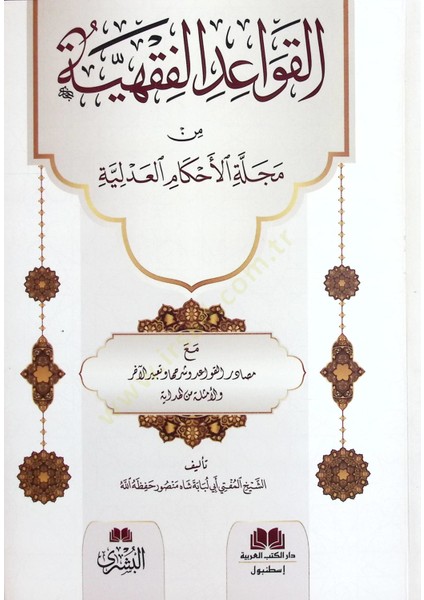 القَوَاعِدُ الفِقْهِيَّةُ
مِنْ
مَجَلَّةِ الأَحْكَامِ العَدْلِيَّةِ
مَعَ
مصادر القواعد وشرحها وتعبير الآخر
والأمثلة من الهداية
تأليف
الشَّيْخ المُفْتِي أَبِي لُبَابَة شَاه مَنْصُور حَفِظَهُ اللهُ
البُشْرى
دار الكتب العربية
إسطنبول